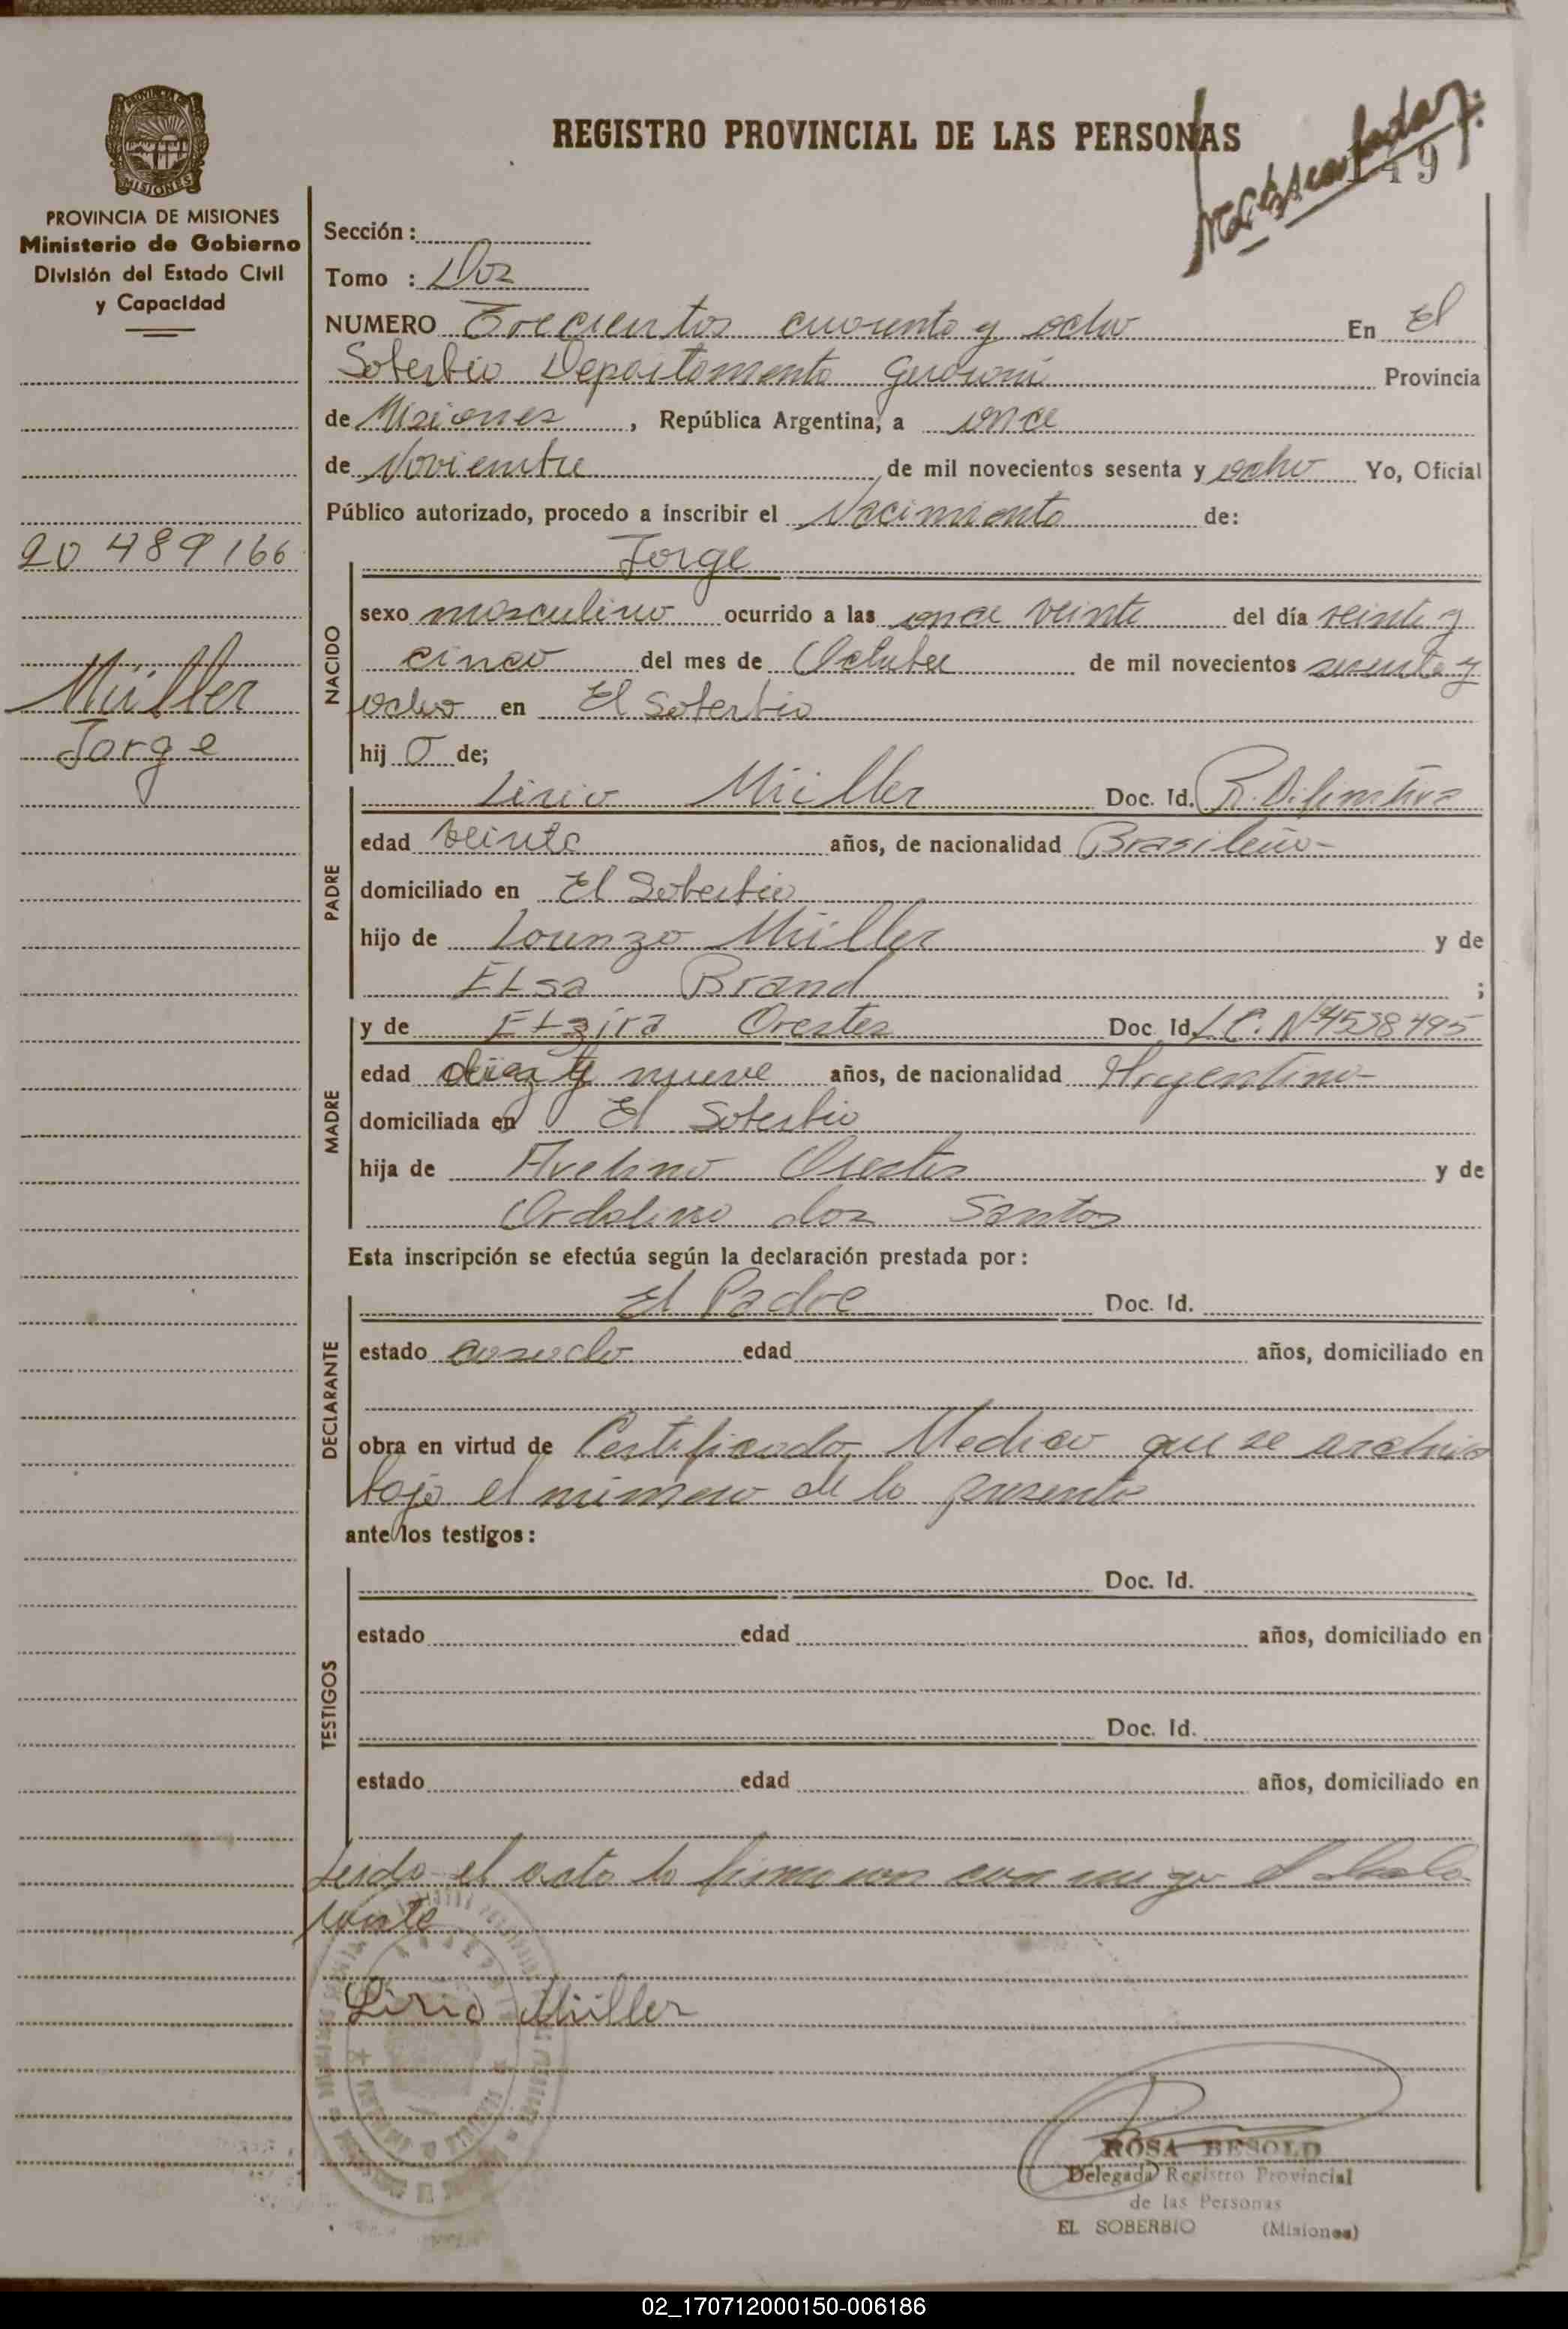 REGISTRO PROVINCIAL DE LAS PERSONAS
149
PROVINCIA DE MISIONES
MISIONES
PROVINCIA DE MISIONES
Ministerio de Gobierno
División del Estado Civil
y Capacidad
20 489 166
Müller
Jorge
Sección :
Tomo : Dos
NUMERO Trecientos cuarenta y ocho En El
Soberbio Departamento Guaraní Provincia
de Misiones , República Argentina, a once
de Noviembre de mil novecientos sesenta y ocho Yo, Oficial
Público autorizado, procedo a inscribir el Nacimiento de:
NACIDO
Jorge
sexo masculino ocurrido a las once veinte del día veinte y
cinco del mes de Octubre de mil novecientos sesenta y
ocho en El Soberbio
hij o de;
PADRE
Lirio Müller Doc. Id. R. Difinitiva
edad veinte años, de nacionalidad Brasileño-
domiciliado en El Soberbio
hijo de Lorenzo Müller y de
Elsa Brand ;
MADRE
y de Elzira Orestes Doc. Id. L.C. Nº 4538495
edad diez y nueve años, de nacionalidad Argentina-
domiciliada en El Soberbio
hija de Avelino Orestes y de
Ordalina dos Santos
Esta inscripción se efectúa según la declaración prestada por:
DECLARANTE
El Padre Doc. Id.
estado casado edad años, domiciliado en
obra en virtud de Certificado Medico que se archiva
bajo el numero de la presente
ante los testigos:
TESTIGOS
Doc. Id.
estado edad años, domiciliado en
Doc. Id.
estado edad años, domiciliado en
Leida el acta la firman con migo el decla
rante
Lirio Müller
ROSA BESOLD
Delegada Registro Provincial
de las Personas
EL SOBERBIO (Misiones)
02_170712000150-006186